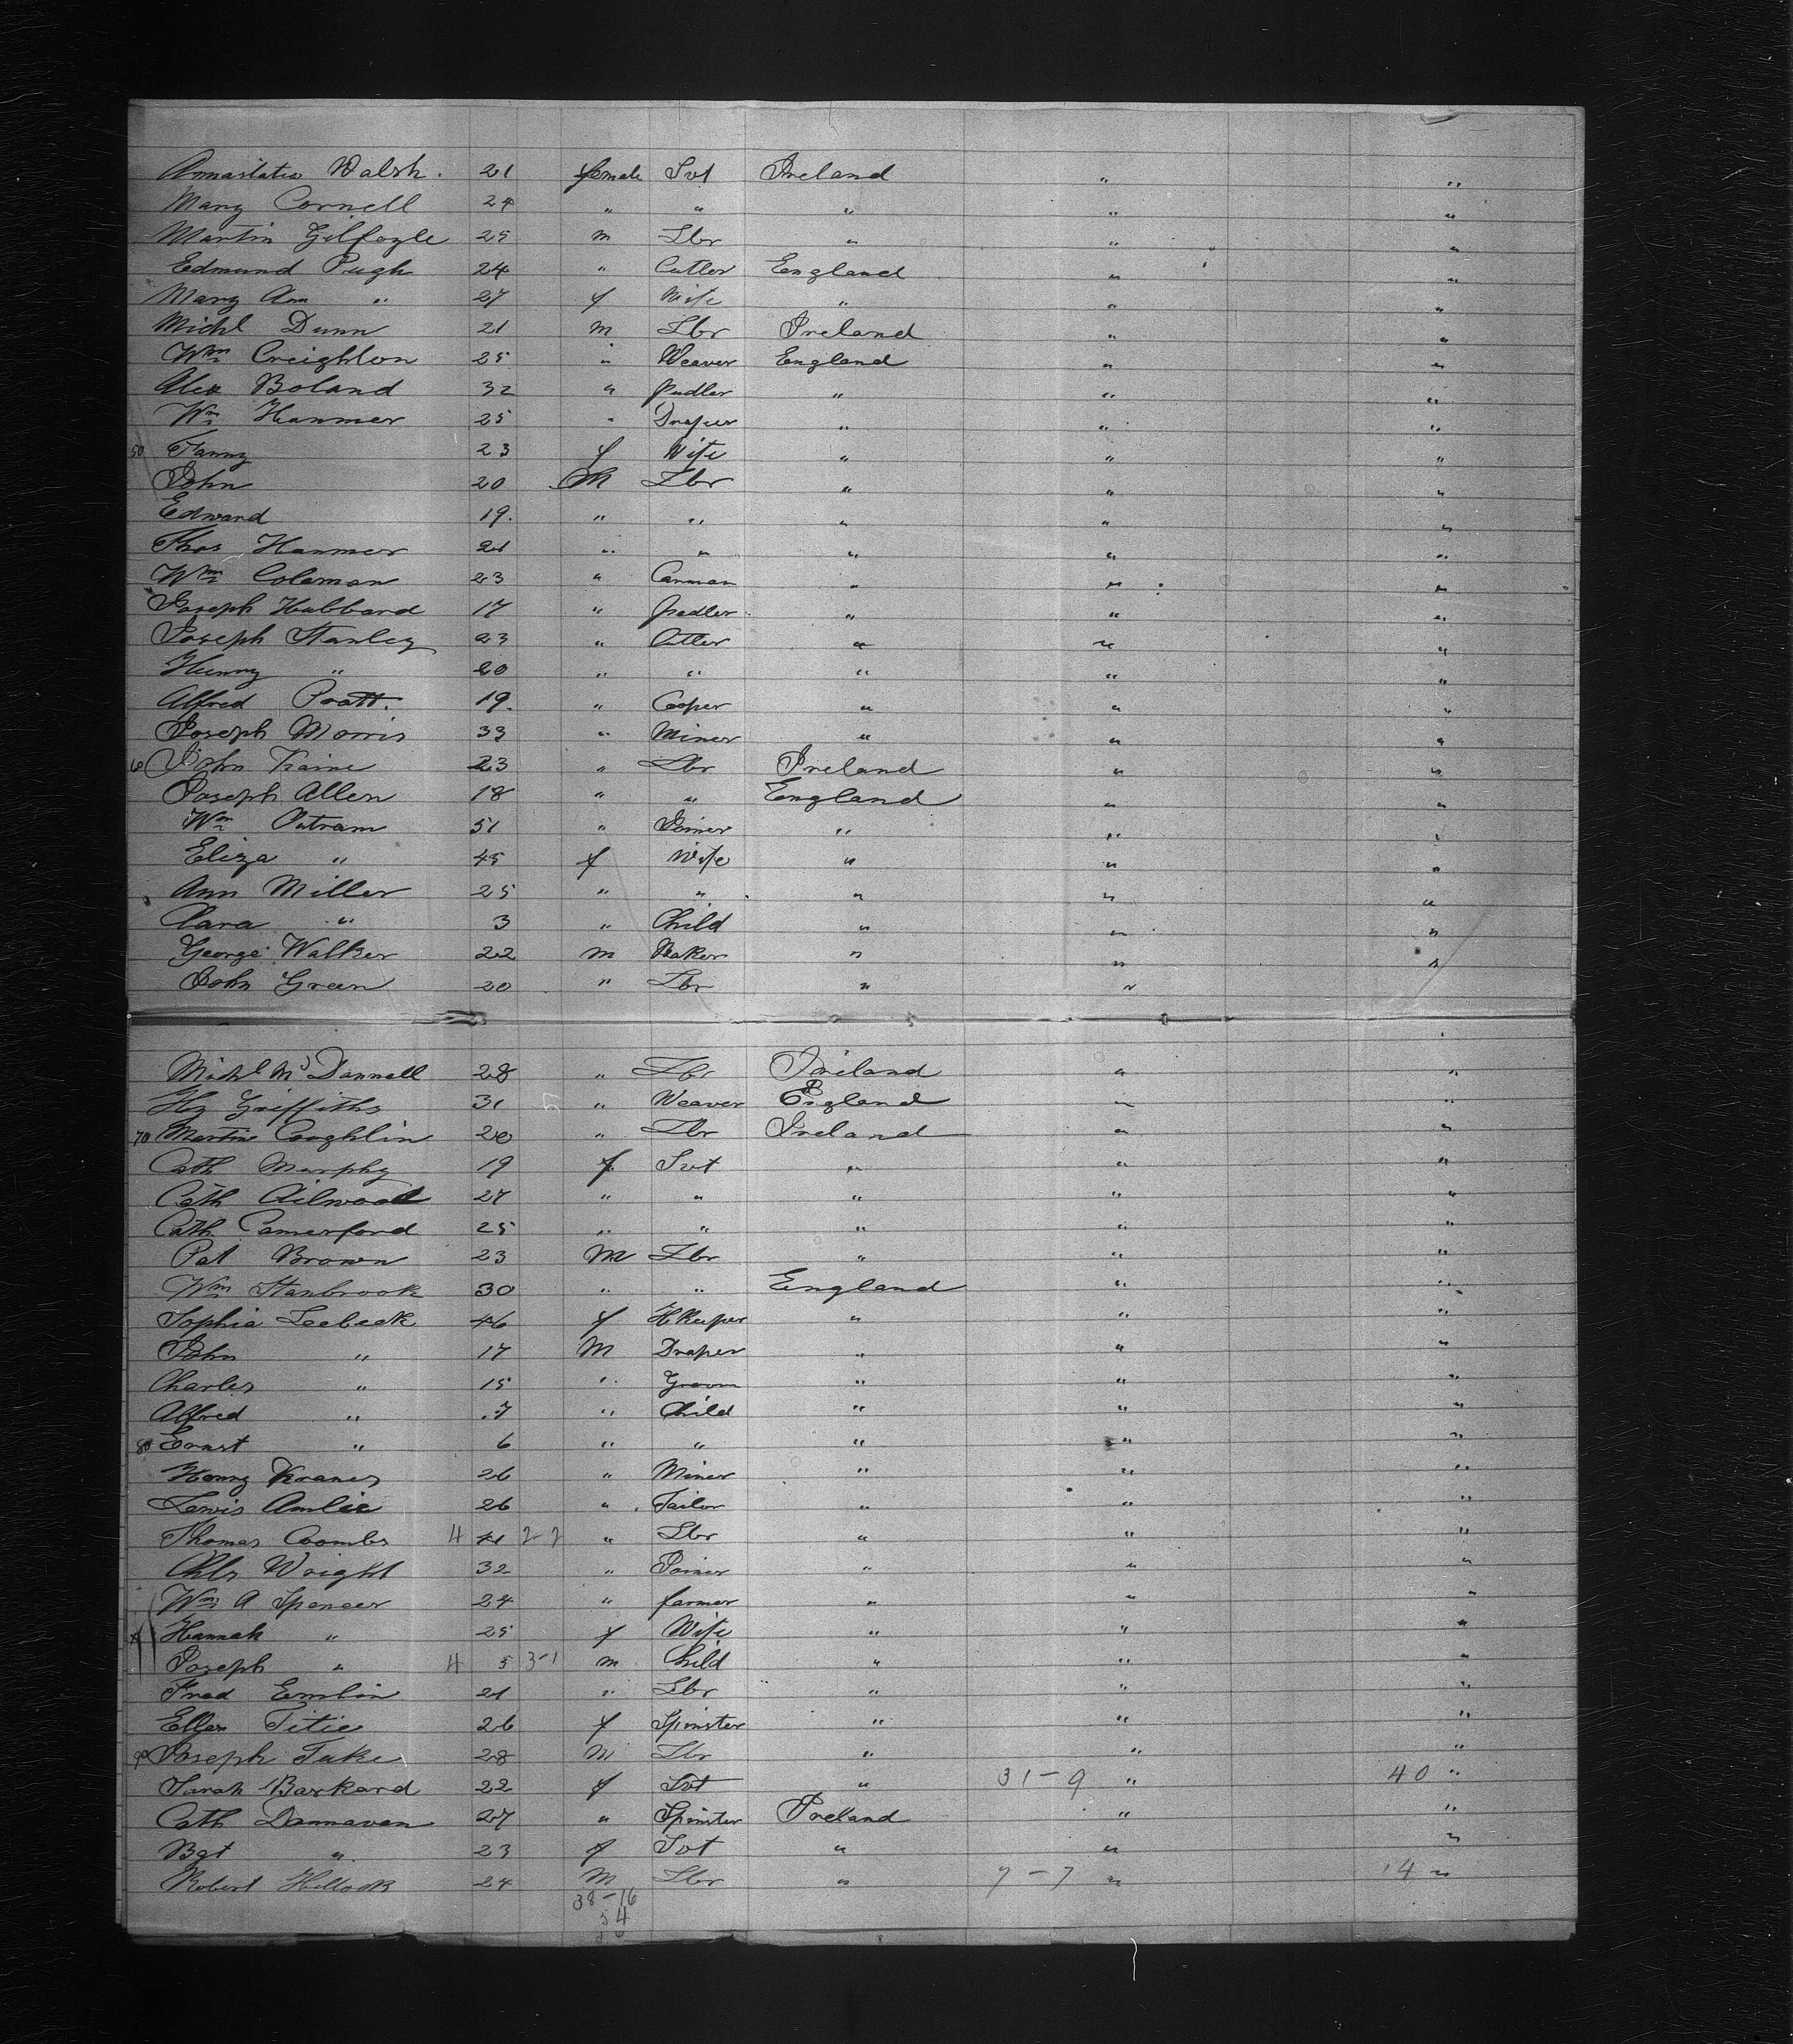 Annastatia Walsh. 21 female Svt Ireland " "
Mary Cornell 24 " " " " "
Martin Gilfoyle 25 m Lbr " " "
Edmund Pugh 24 " Cutler England " "
Mary Ann " 27 f Wife " " "
Michl Dunn 21 m Lbr Ireland " "
Wm Creighton 25 " Weaver England " "
Alex Boland 32 " Pudler " " "
Wm Hanmer 25 " Draper " " "
50 Fanny 23 f Wife " " "
John 20 M Lbr " " "
Edward 19. " " " " "
Thos Hanmer 21 " " " " "
Wm Coleman 23 " Carman " " "
Joseph Hubbard 17 " Pedler " " "
Joseph Stanley 23 " Cutler " " "
Henry " 20 " " " " "
Alfred Pratt. 19. " Cooper " " "
Joseph Morris 33 " Miner " " "
60 John Traine 23 " Lbr Ireland " "
Joseph Allen 18 " " England " "
Wm Outram 51 " Joiner " " "
Eliza " 45 f Wife " " "
Ann Miller 25 " " " " "
Clara " 3 " Child " " "
George Walker 22 m Baker " " "
John Green 20 " Lbr " "
Michl McDannell 28 " Lbr Ireland " "
Hy Griffiths 31 " Weaver England " "
70 Martin Coughlin 20 " Lbr Ireland " "
Cath Murphy 19 f Svt " " "
Cath Ailwood 27 " " " " "
Cath Comerford 25 " " " " "
Pat Brown 23 M Lbr " " "
Wm Stanbrook 30 " " England " "
Sophia Leebeck 46 f HKeeper " " "
John " 17 M Draper " " "
Charles " 15 " Groom " " "
Alfred " 7 " Child " " "
80 Ernst " 6 " " " " "
Henry Kranes 26 " Miner " " "
Lewis Amlie 26 " Tailor " " "
Thomas Coombs 4 41 2-2 " Lbr " " "
Chls Wright 32 " Joiner " " "
Wm A Spencer 24 " farmer " " "
Hannah " 25 f Wife " " "
Joseph " 4 5 3-1 m Child " " "
Fred Emlin 21 " Lbr " " "
Ellen Titie 26 f Spinster " " "
90 Joseph Take 28 M Lbr " " "
Sarah Barkard 22 f Svt " 31-9 " 40 "
Cath Dannavan 27 " Spinster Ireland " "
Bgt " 23 f Svt " " "
Robert Hillock 24 M Lbr " 7-7 " 14 "
38-16
54